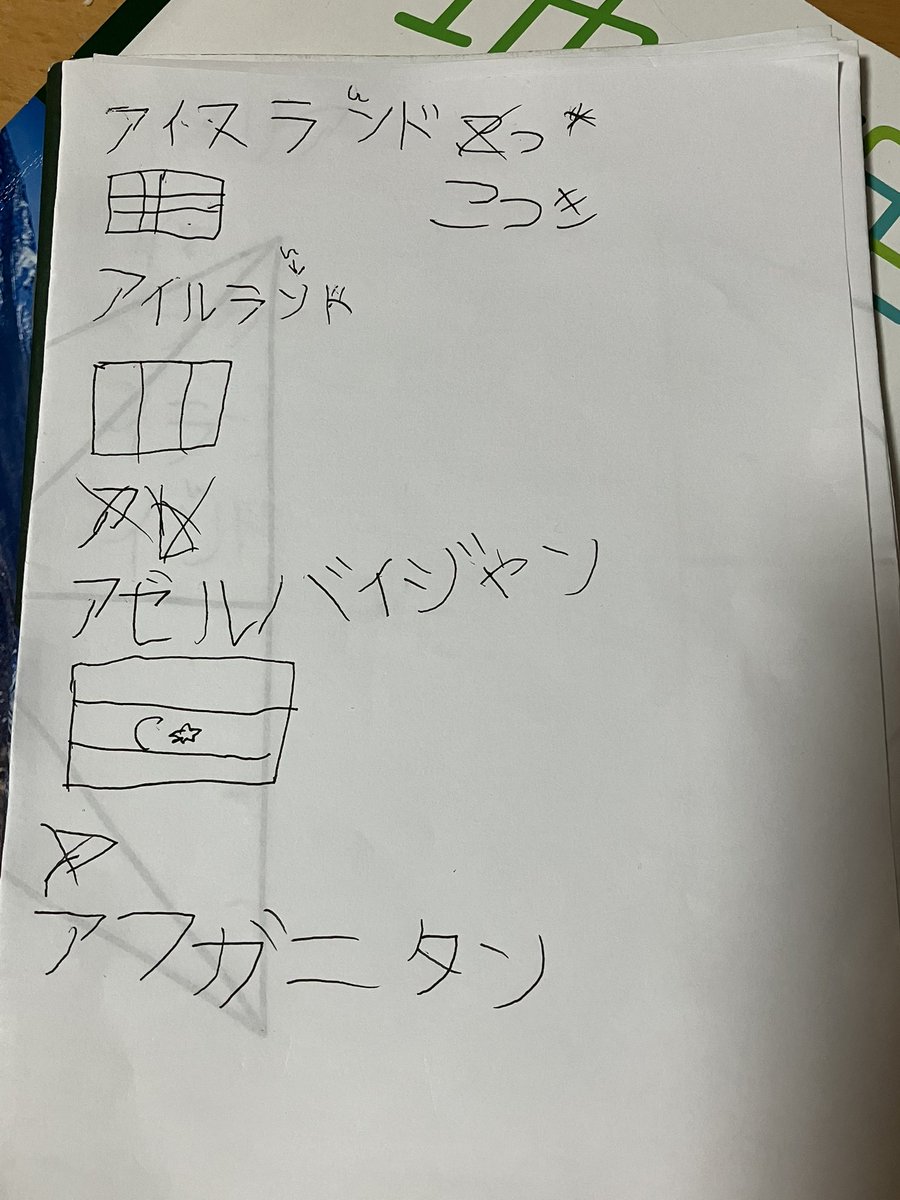 アイスランド
こつき
アイルランド
アゼルバイジャン
アフガニタン